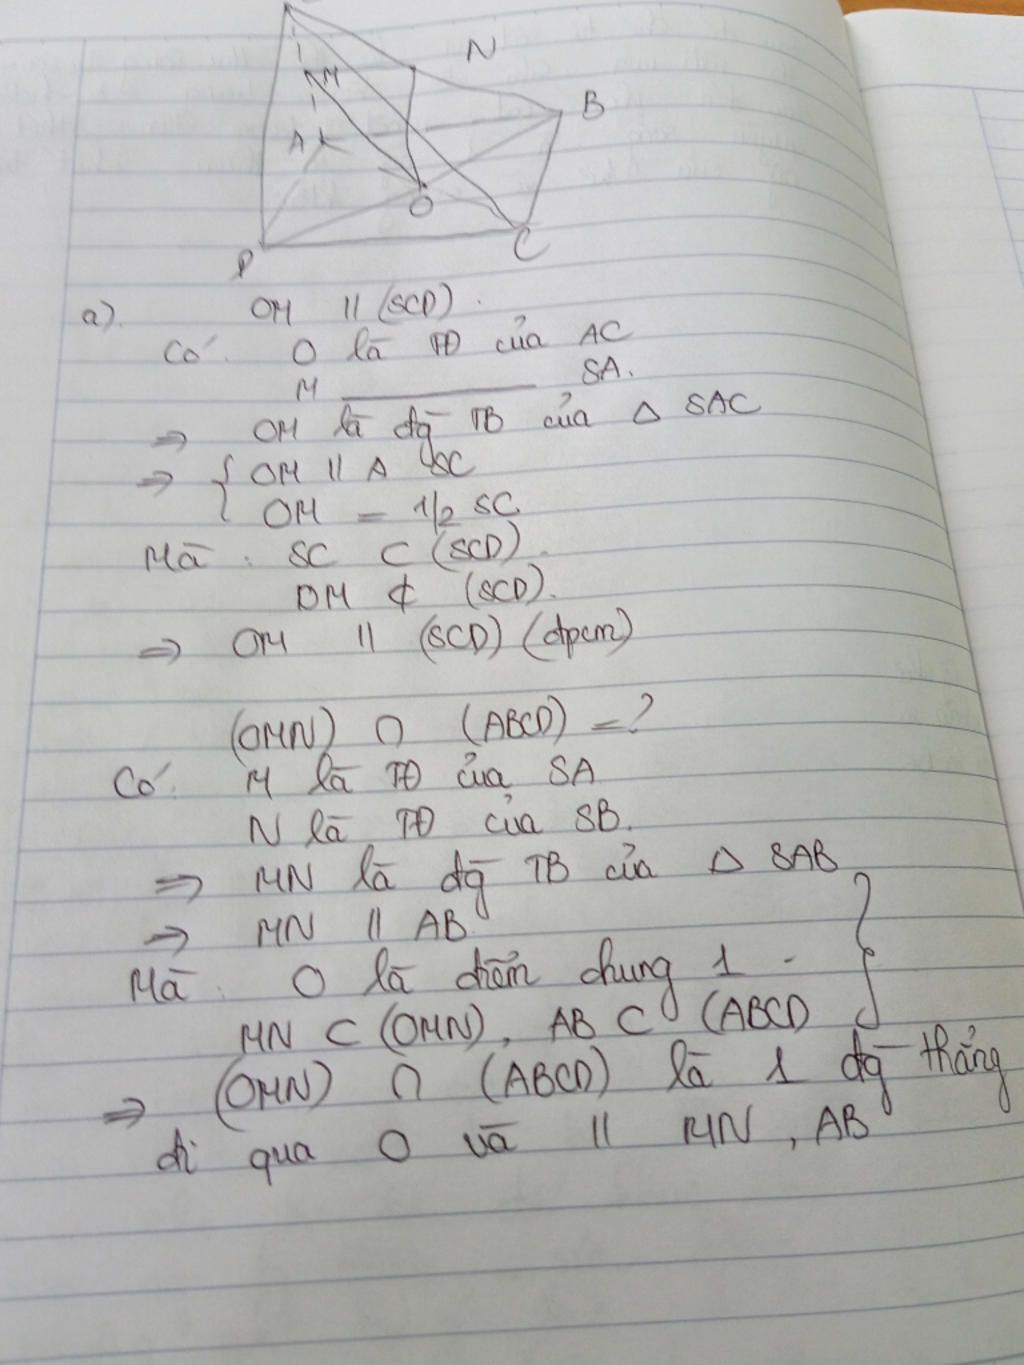 N
M
B
A
O
C
D
a). OM // (SCD).
Có: O là TĐ của AC
M ——— SA.
⇒ OM là đg TB của Δ SAC
⇒ { OM // SC
OM = 1/2 SC
Mà: SC ⊂ (SCD).
OM ⊄ (SCD).
⇒ OM // (SCD) (đpcm)
(OMN) ∩ (ABCD) = ?
Có: M là TĐ của SA
N là TĐ của SB.
⇒ MN là đg TB của Δ SAB
⇒ MN // AB
Mà: O là điểm chung 1.
MN ⊂ (OMN), AB ⊂ (ABCD
⇒ (OMN) ∩ (ABCD) là 1 đg thẳng
đi qua O và // MN, AB